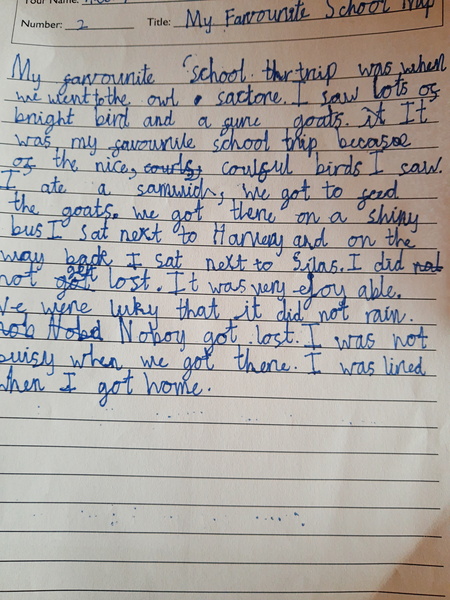 Your Name:
Number: 2 Title: My Favourite School Trip
My favourite school trip was when
we went to the owl sactore. I saw lots of
bright bird and a fune goats. it It
was my favourite school trip becasoe
of the nice, courls, coulful birds I saw.
I ate a samwich, we got to feed
the goats. we got there on a shiny
bus I sat next to Harvery and on the
way back I sat next to Silas. I did not
not got get lost. It was very ejoy able.
We were luky that it did not rain.
nob Nobd Noboy got lost. I was not
buisy when we got there. I was lined
when I got home.